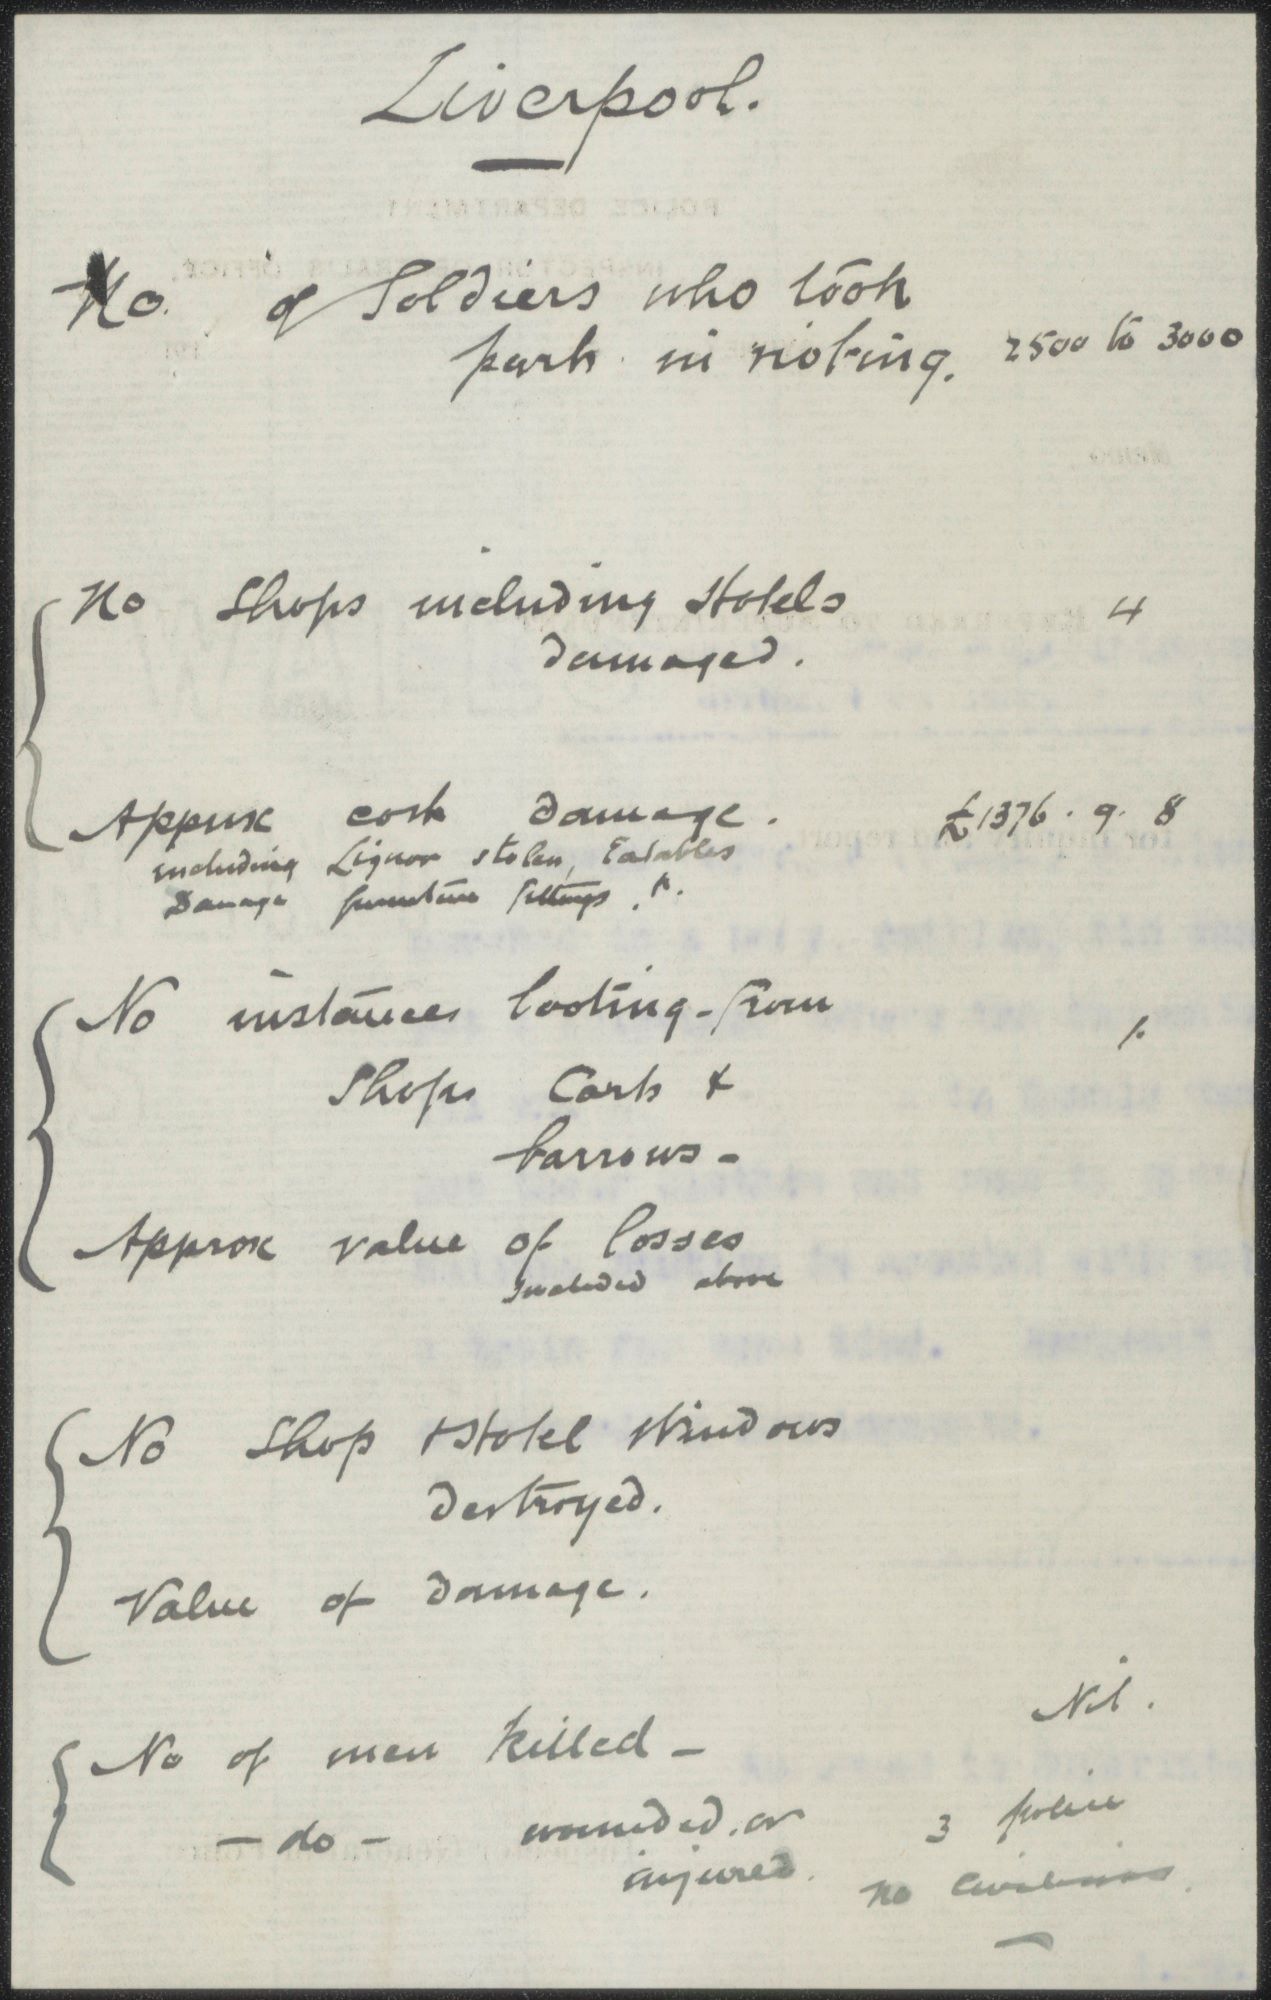 Liverpool.
No. of Soldiers who took
part in rioting. 2500 to 3000
No Shops including Hotels 4
damaged.
Approx cost damage. £1376. 9. 8
including Liquor stolen, Eatables
Damage furniture fittings
No instances looting - from 1.
Shops Carts &
barrows -
Approx value of losses
Included above
No Shop & Hotel Windows
destroyed.
Value of damage.
No of men killed - Nil.
- do - wounded or 3 police
injured. no Civilians.